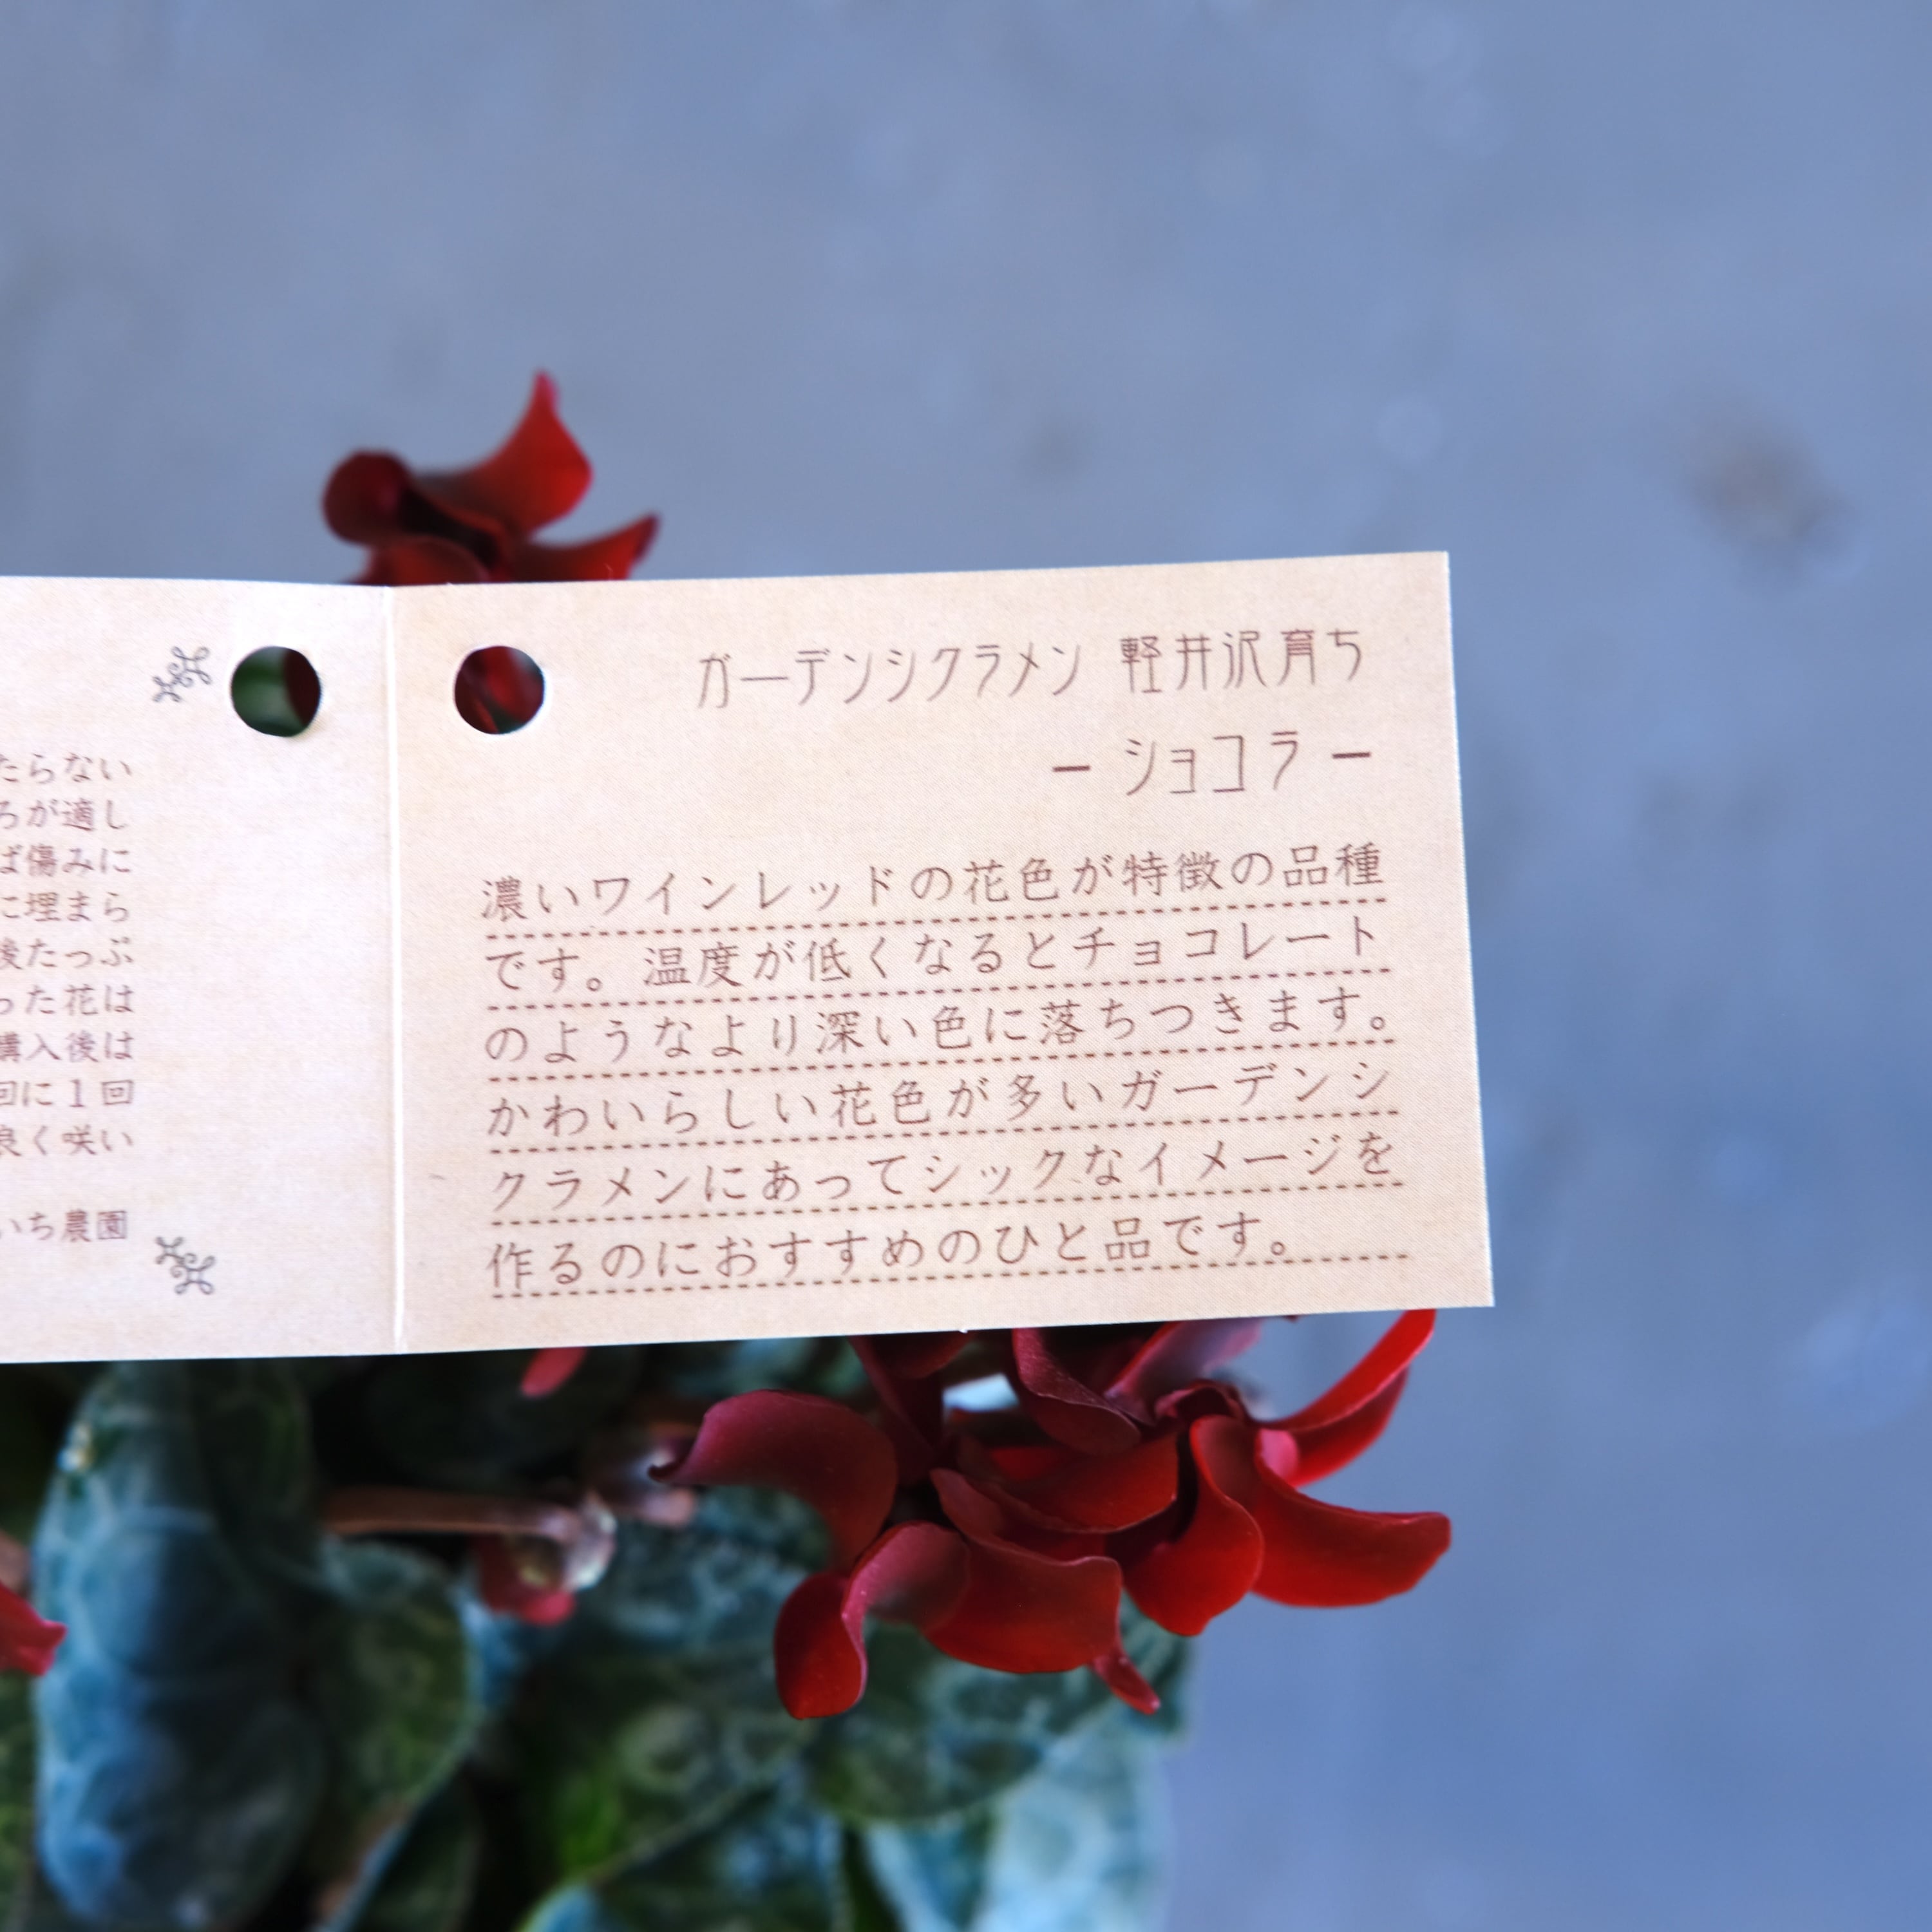 たらない
ろが適し
ば傷みに
に埋まら
後たっぷ
った花は
購入後は
回に１回
良く咲い
いち農園
ガーデンシクラメン 軽井沢育ち
ー ショコラ ー
濃いワインレッドの花色が特徴の品種
です。温度が低くなるとチョコレート
のようなより深い色に落ちつきます。
かわいらしい花色が多いガーデンシ
クラメンにあってシックなイメージを
作るのにおすすめのひと品です。